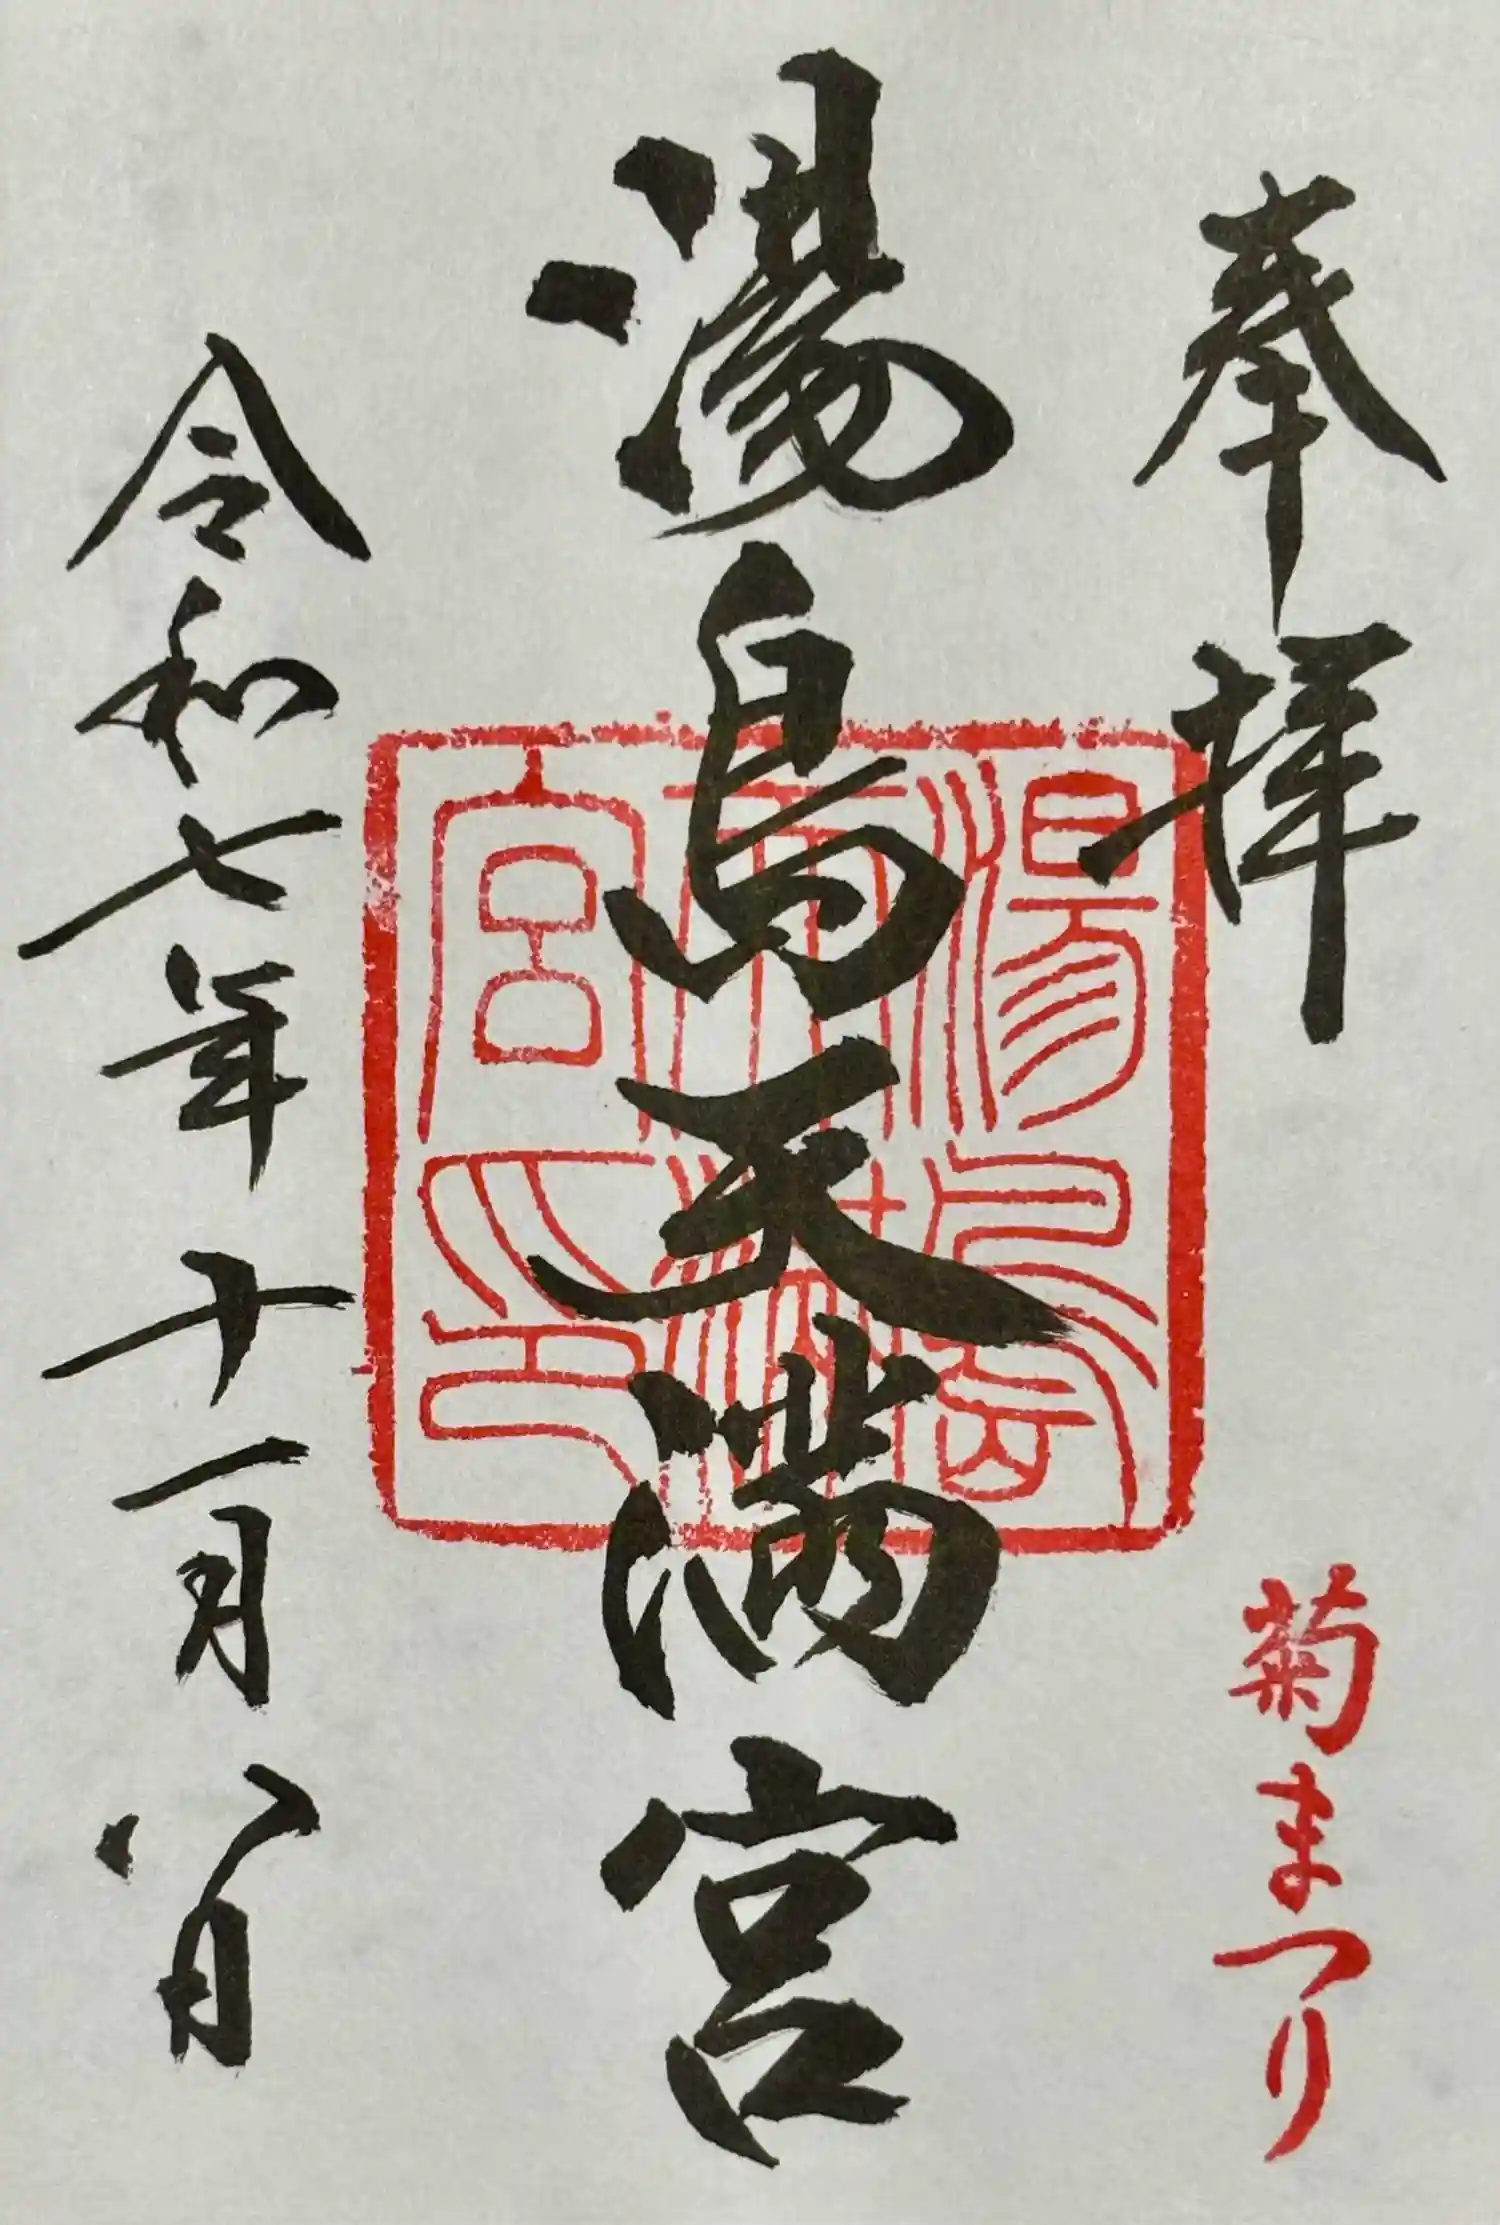 奉拝
菊まつり
湯島天満宮
湯島天満宮印
令和七年十一月八日